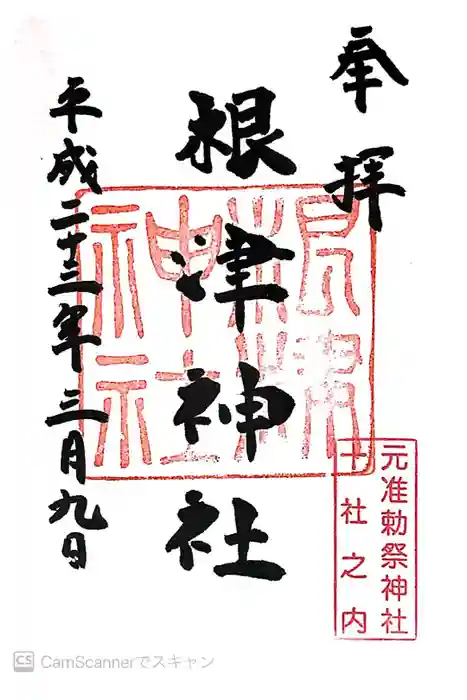 奉拝
根津神社
平成二十三年三月九日
根津
神社
元准勅祭神社
十社之内
CamScannerでスキャン